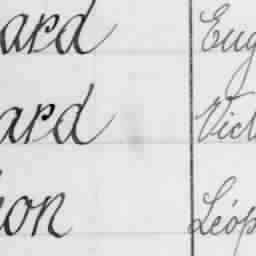 ard Eug
ard Vict
on Léop